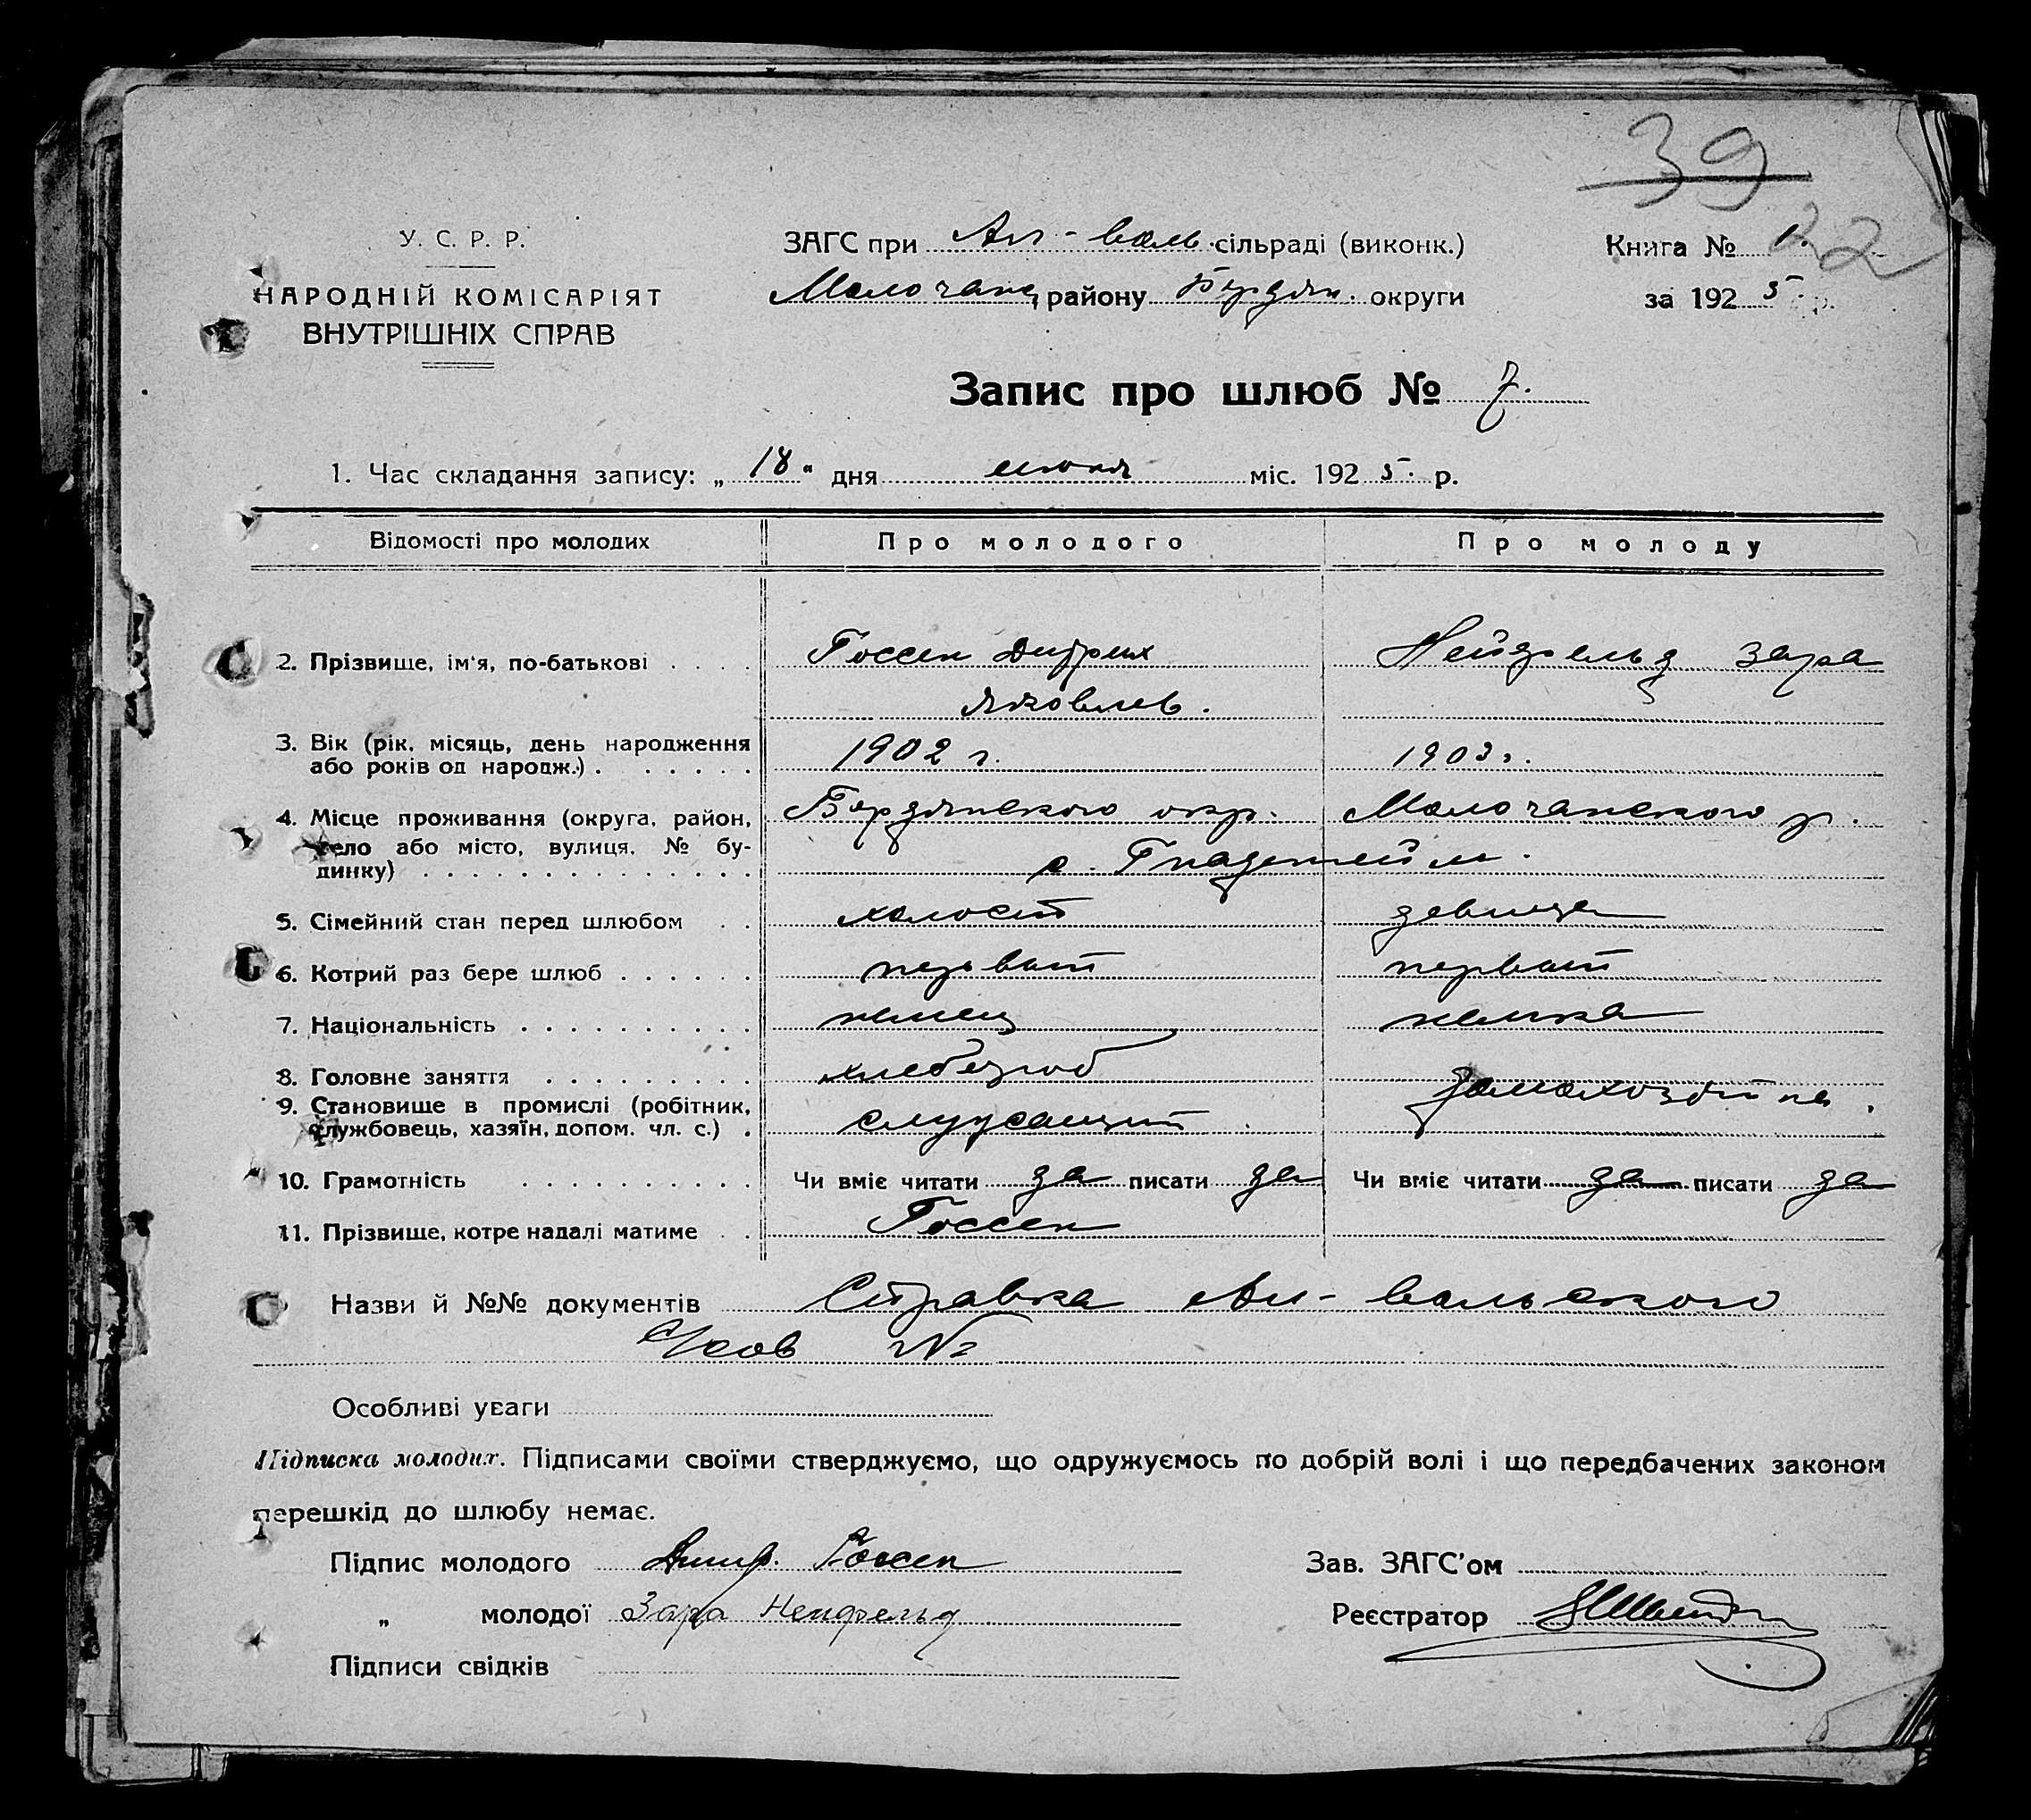 39
22
У. С. Р. Р.
НАРОДНІЙ КОМІСАРІЯТ
ВНУТРІШНІХ СПРАВ
ЗАГС при Ал-валь. сільраді (виконк.)
Молочанс району Бердян. округи
Книга № 1.
за 1925 р.
Запис про шлюб № 7.
1. Час складання запису: „18" дня июня міс. 1925. р.
Відомості про молодих Про молодого Про молоду
2. Прізвище, ім'я, по-батькові Госсен Дитрих Нейфельд Зара
Яковлев.
3. Вік (рік, місяць, день народження 1902 г. 1903 г.
або років од народж.)
4. Місце проживання (округа, район, Бердянского окр. Молочанского р.
село або місто, вулиця, № бу- с. Гнаденгейм.
динку)
5. Сімейний стан перед шлюбом холост девица
6. Котрий раз бере шлюб первый первый
7. Національність немец немка
8. Головне заняття хлебороб домохозяйка.
9. Становище в промислі (робітник,
службовець, хазяїн, допом. чл. с.)
10. Грамотність Чи вміє читати да писати да Чи вміє читати да писати да
11. Прізвище, котре надалі матиме Госсен
Назви й №№ документів Справка Ал-вальского
№
Особливі уваги
Підписка молодих. Підписами своїми стверджуємо, що одружуємось по добрій волі і що передбачених законом
перешкід до шлюбу немає.
Підпис молодого Дитр. Госсен Зав. ЗАГС'ом
„ молодої Зара Нейфельд Реєстратор
Підписи свідків